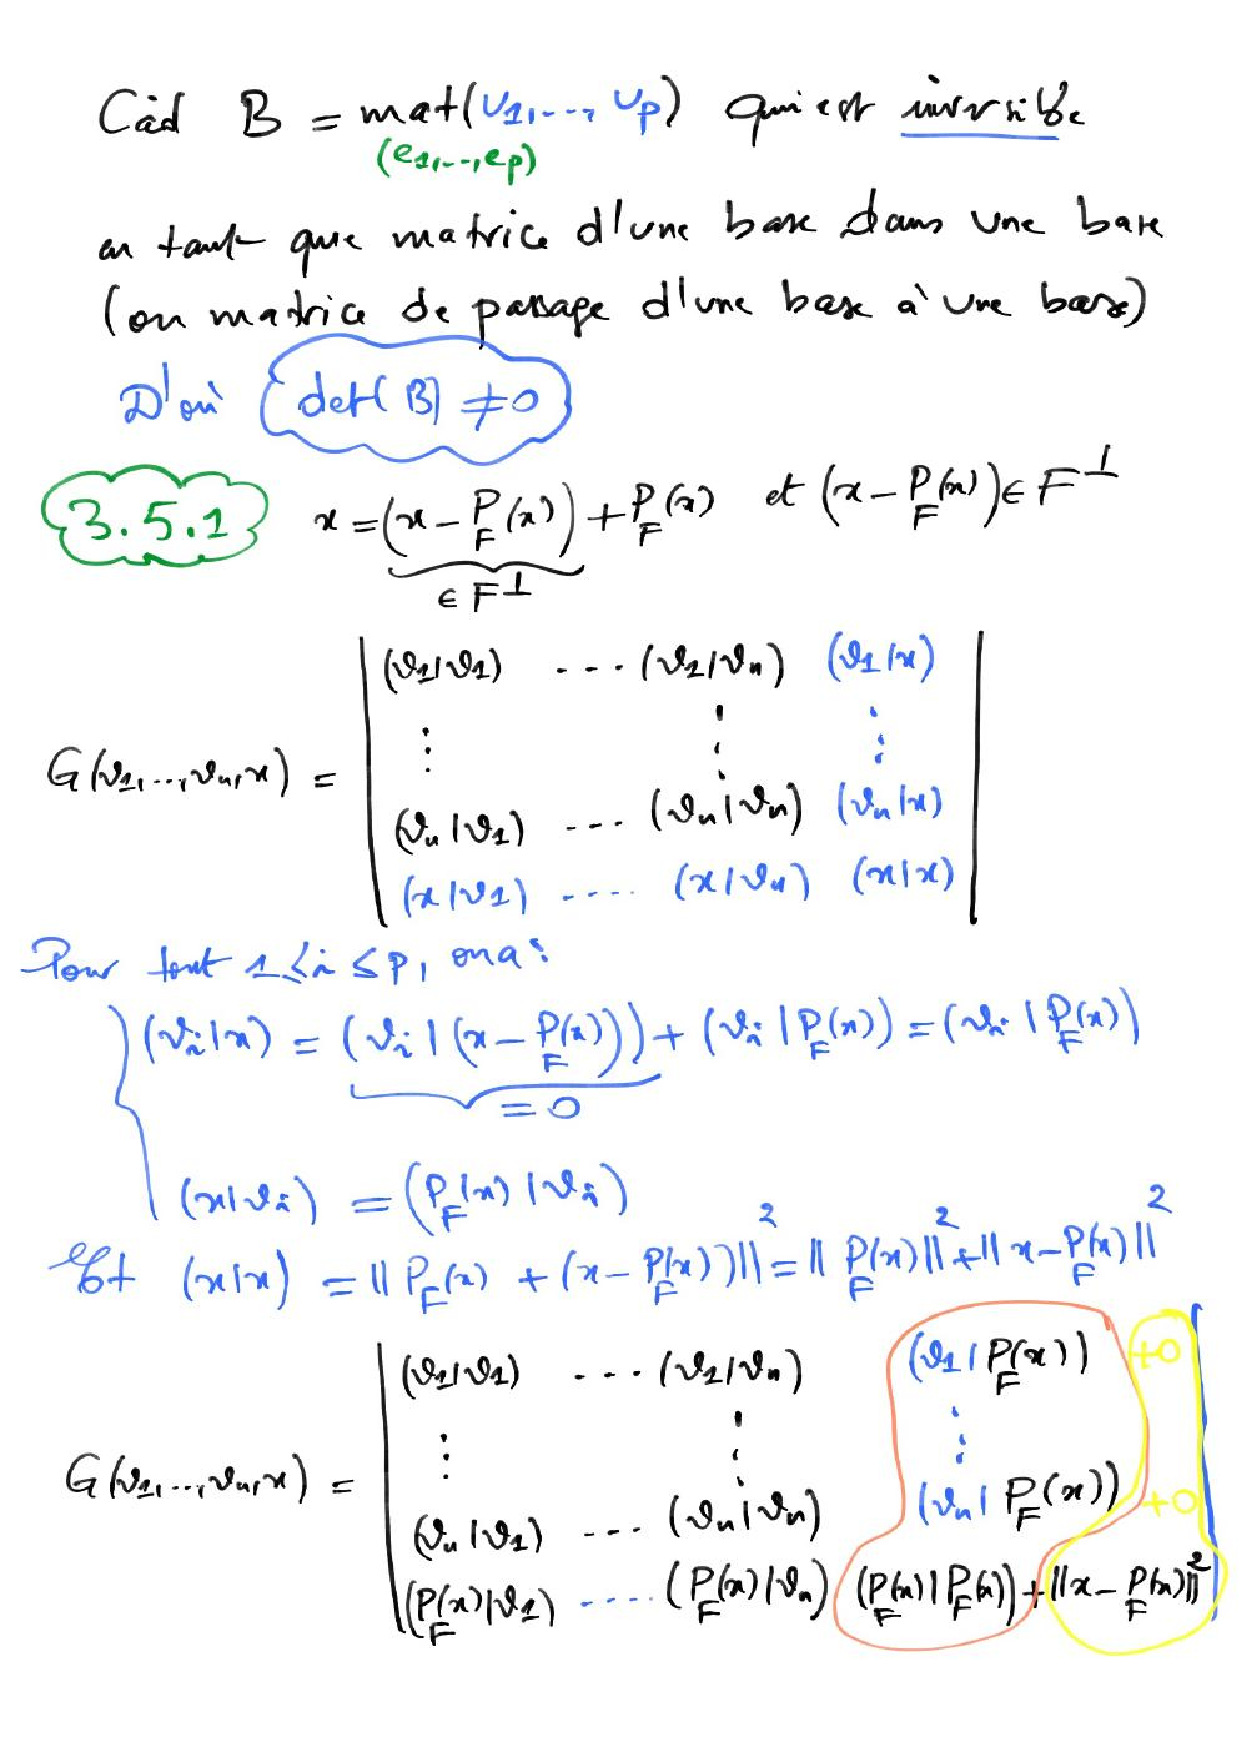 Càd B = mat(v₁,..., v_p) qui est inversible
(e₁,..,e_p)
en tant que matrice d'une base dans une base
(ou matrice de passage d'une base à une base)
D'où det(B) ≠ 0
3.5.1 x = (x − P_F(x)) + P_F(x) et (x − P_F(x)) ∈ F^⊥
∈ F^⊥
(v₁|v₁) ... (v₁|vₙ) (v₁|x)
⋮ ⋮ ⋮
G(v₁,..,vₙ,x) =
(vₙ|v₁) ... (vₙ|vₙ) (vₙ|x)
(x|v₁) .... (x|vₙ) (x|x)
Pour tout 1 ≤ i ≤ p, on a :
(v_i|x) = (v_i | (x − P_F(x))) + (v_i | P_F(x)) = (v_i | P_F(x))
= 0
(x|v_i) = (P_F(x) | v_i)
Et (x|x) = || P_F(x) + (x − P_F(x)) ||² = || P_F(x) ||² + || x − P_F(x) ||²
(v₁|v₁) ... (v₁|vₙ) (v₁ | P_F(x)) +0
⋮ ⋮ ⋮
G(v₁,..,vₙ,x) =
(vₙ|v₁) ... (vₙ|vₙ) (vₙ | P_F(x)) +0
(P_F(x)|v₁) .... (P_F(x)|vₙ) (P_F(x)|P_F(x)) + ||x − P_F(x)||²